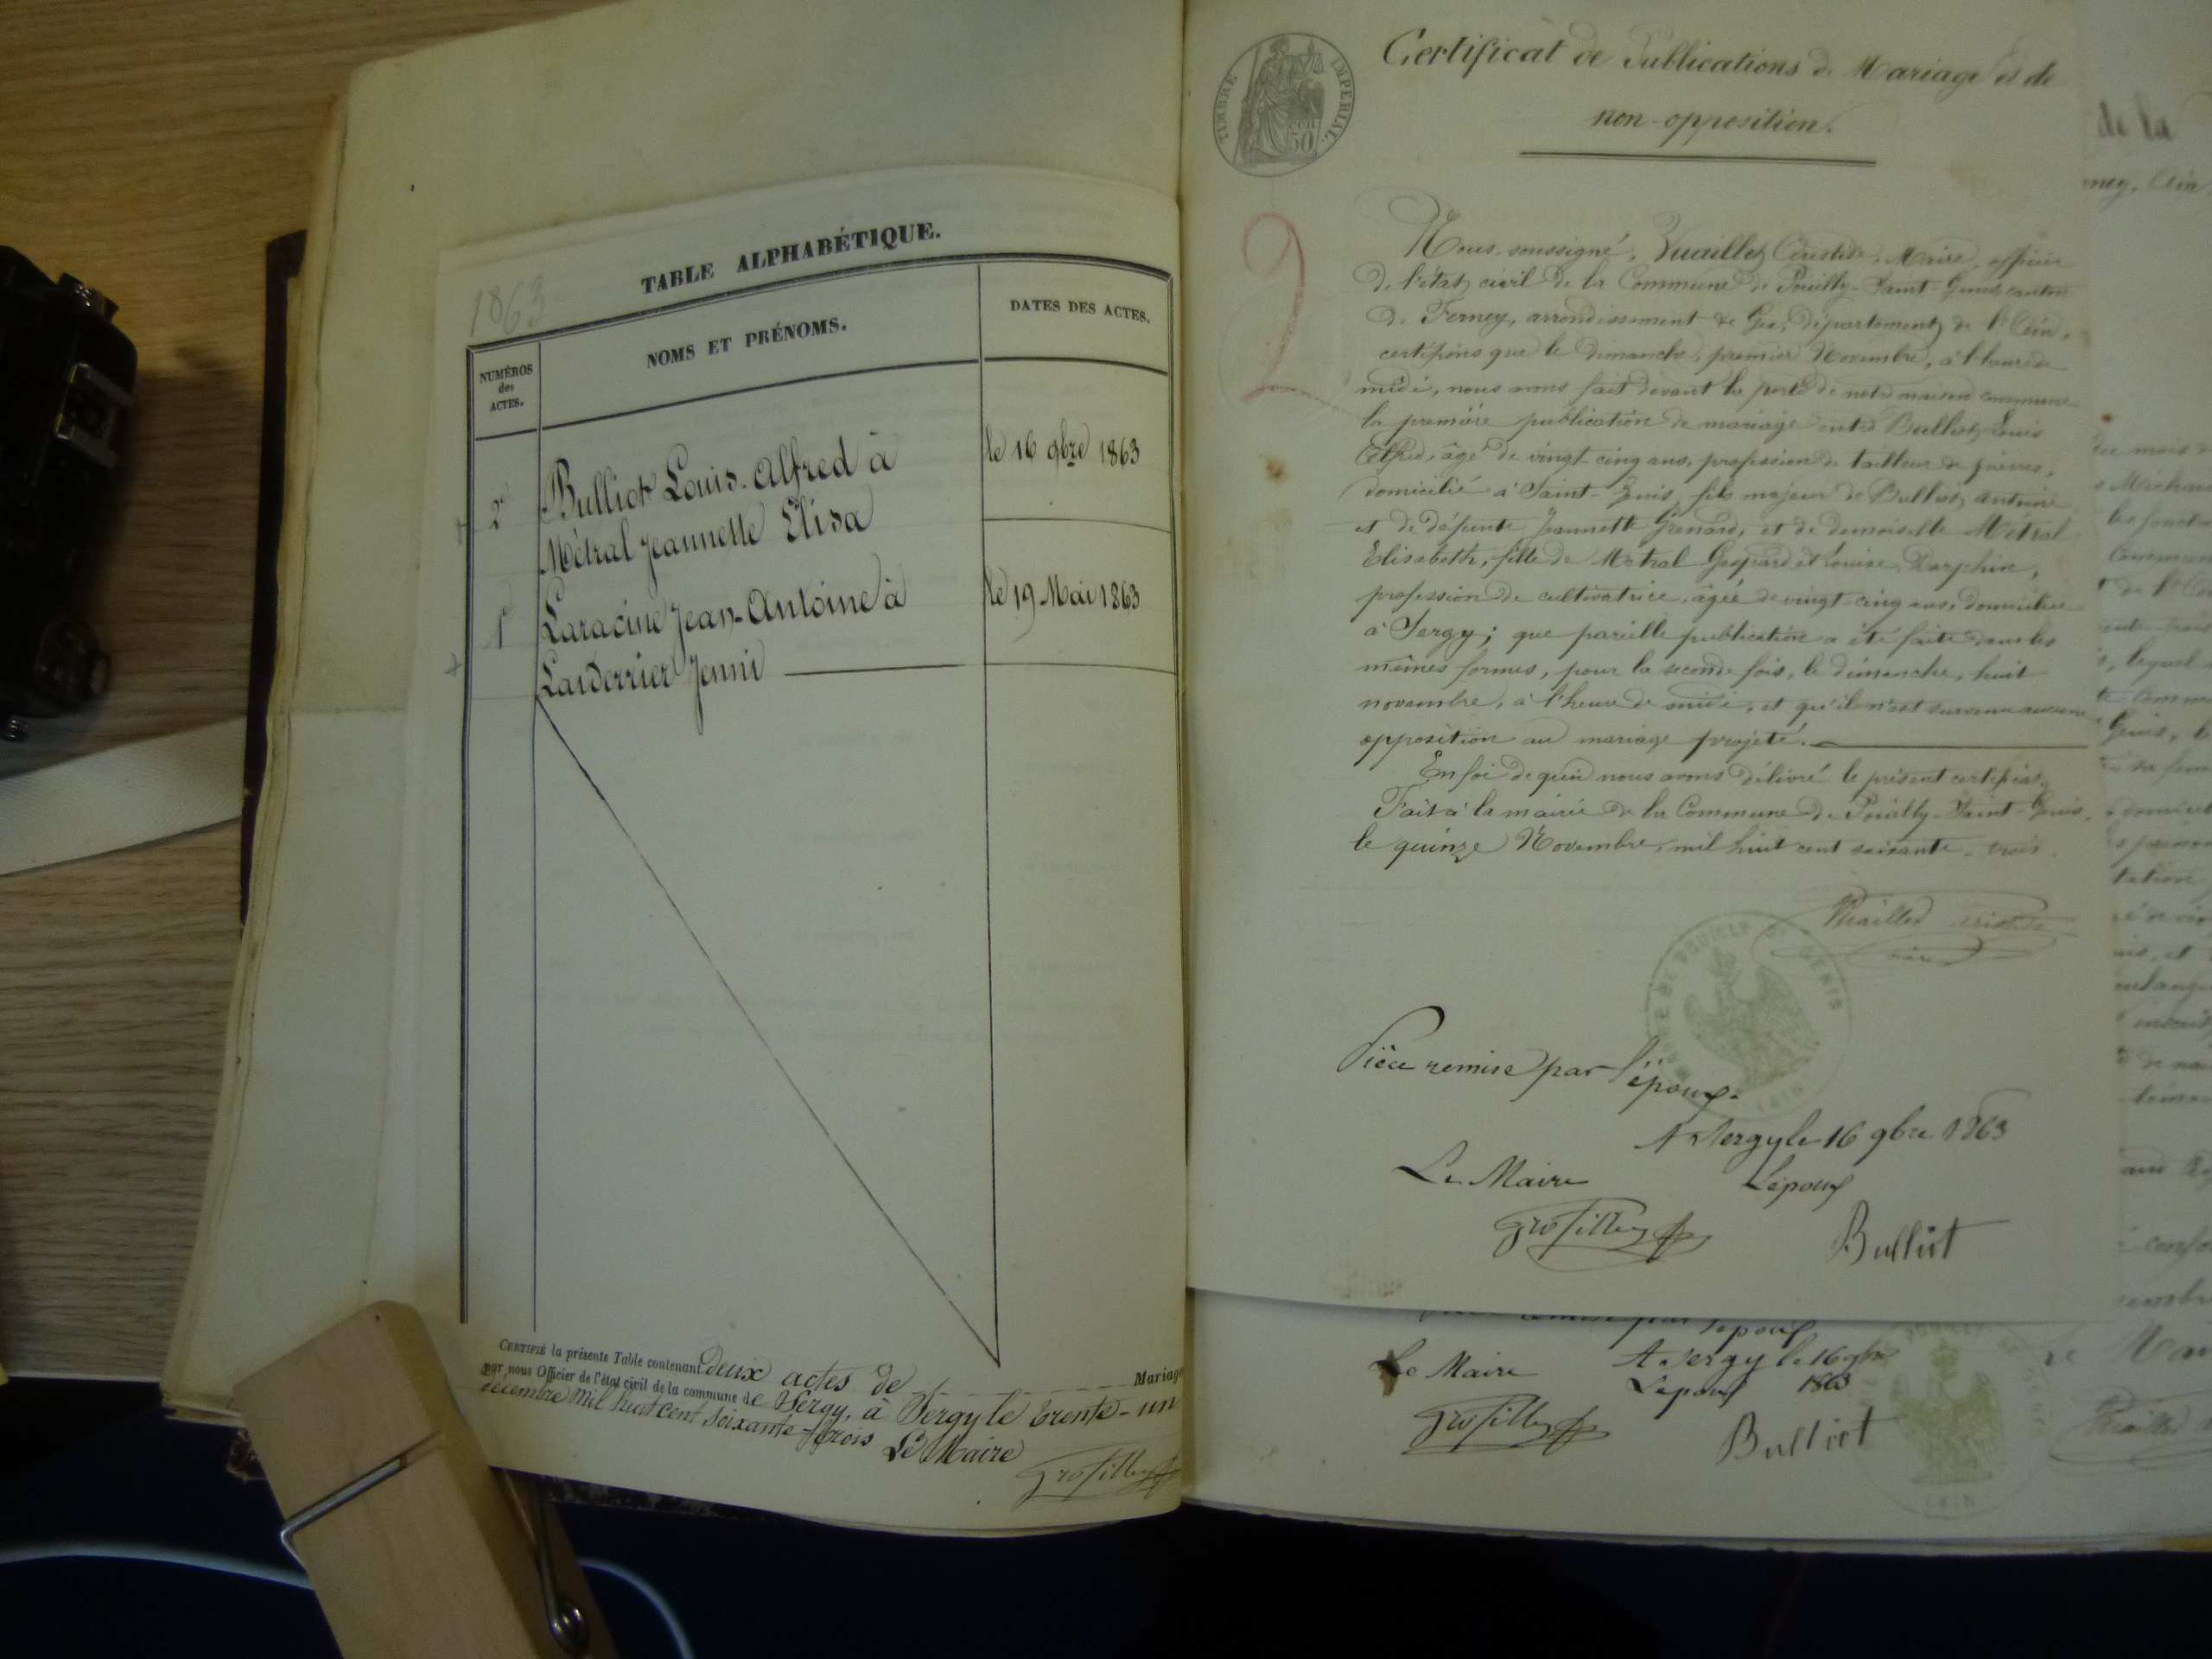 1863
TABLE ALPHABÉTIQUE.
NUMÉROS
des
ACTES.
NOMS ET PRÉNOMS.
DATES DES ACTES.
2 Bulliot Louis-Alfred à le 16 9bre 1863
Métral Jeannette Elisa
1 Laracine Jean-Antoine à le 19 Mai 1863
Larderrier Jenni
CERTIFIÉ la présente Table contenant deux actes de Mariage
par nous Officier de l'état civil de la commune de Sergy, à Sergy le trente-un
décembre mil huit cent soixante-trois Le Maire
Grosfilley
TIMBRE IMPERIAL.
50
Certificat de Publications de Mariage et de
non-opposition.
2
Nous, soussigné, Vuaillet Aristide, Maire, officier
de l'état civil de la Commune de Pouilly-Saint-Genis, canton
de Ferney, arrondissement de Gex, département de l'Ain,
certifions que le dimanche, premier Novembre, à l'heure de
midi, nous avons fait devant la porte de notre maison commune
la première publication de mariage entre Bulliot, Louis
Alfred, âgé de vingt cinq ans, profession de tailleur de pierres,
domicilié à Saint-Genis, fils majeur de Bulliot, Antoine
et de défunte Jeannette Grenard, et de demoiselle Métral
Elisabeth, fille de Métral Gaspard et Louise Darphin,
profession de cultivatrice, âgée de vingt cinq ans, domiciliée
à Sergy; que pareille publication a été faite dans les
mêmes formes, pour la seconde fois, le dimanche, huit
novembre, à l'heure de midi, et qu'il n'est survenu aucune
opposition au mariage projeté.
En foi de quoi nous avons délivré le présent certificat.
Fait à la mairie de la Commune de Pouilly-Saint-Genis,
le quinze Novembre, mil huit cent soixante-trois.
Vuaillet Aristide
maire
MAIRIE DE POUILLY ST GENIS
(AIN)
Pièce remise par l'époux.
A Sergy le 16 9bre 1863
Le Maire L'époux
Grosfilley Bulliot
Le Maire A Sergy le 16 9bre
L'époux 1863
Grosfilley Bulliot
(AIN)
de la